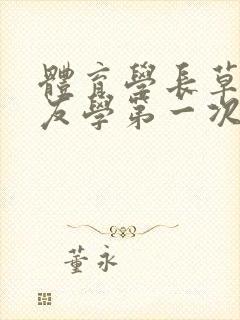 體育學長草
友學第一次
董永